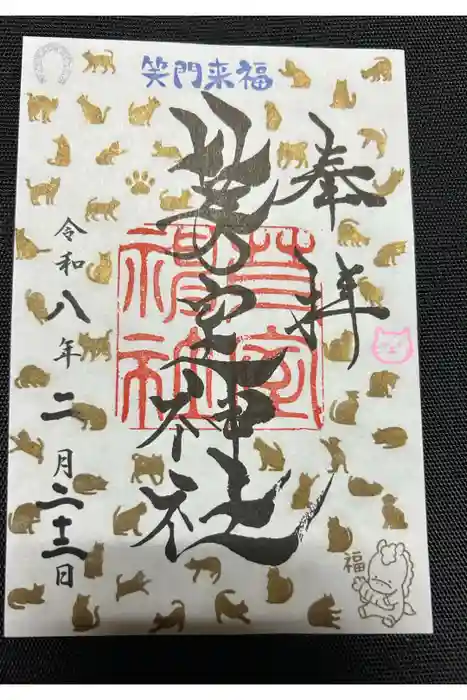 笑門来福
奉拝
神社
令和八年二月二十二日
福